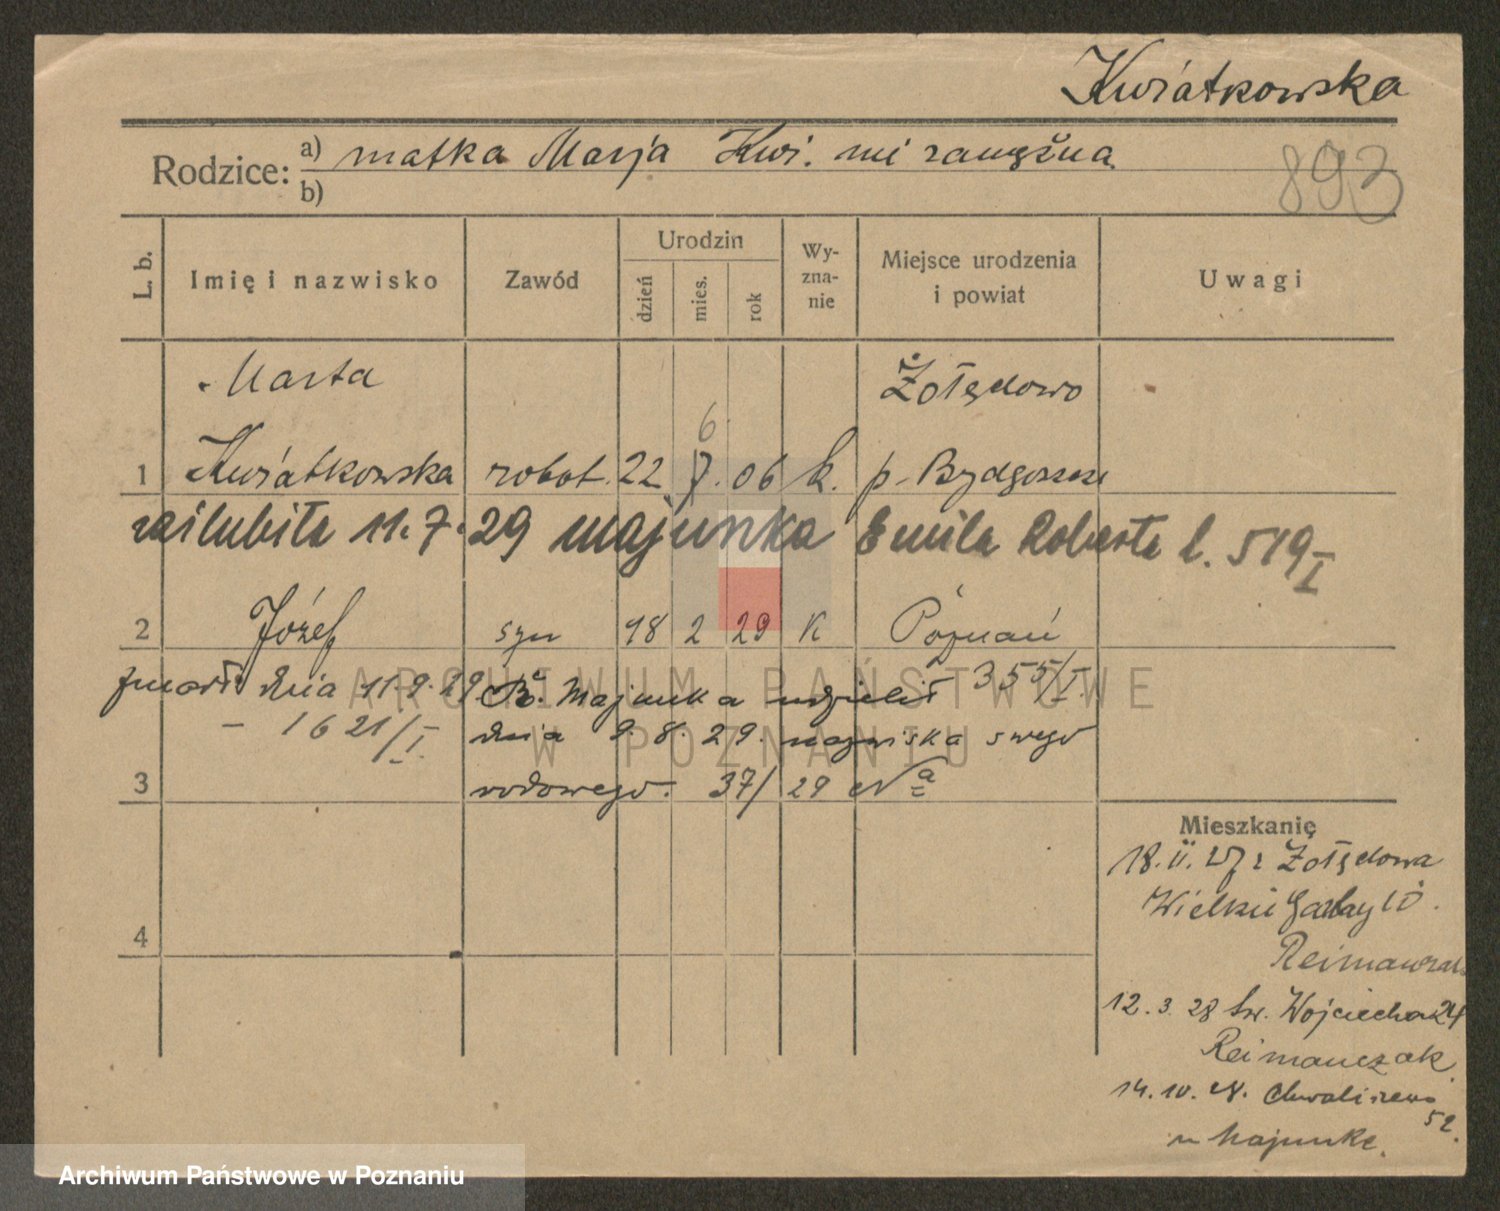 Kwiatkowska
Rodzice: a) matka Marja Kwi. niezamężna
b)
893
L. b.
Imię i nazwisko
Zawód
Urodzin
dzień
mies.
rok
Wy-
zna-
nie
Miejsce urodzenia
i powiat
Uwagi
Marta Żołędowo
6
1 Kwiatkowska robot. 22 7. 06 k. p. Bydgoszcz
zaślubiła 11. 7. 29 Majunka Emila Roberta l. 519/I
2 Józef syn 18 2 29 K Poznań
355/I.
zmarł dnia 11.9.29
- 1621/I.
Majunka udzielił
dnia 9. 8. 29. nazwiska swego
3 rodowego. 37/29
Mieszkanie
18. II. z Żołędowa
Wielkie Garbary 10.
12. 3. 28 św. Wojciecha 24
Reimanczak
14. 10. 28. Chwaliszewo
52.
u Majunke.
4
ARCHIWUM PAŃSTWOWE
W POZNANIU
Archiwum Państwowe w Poznaniu